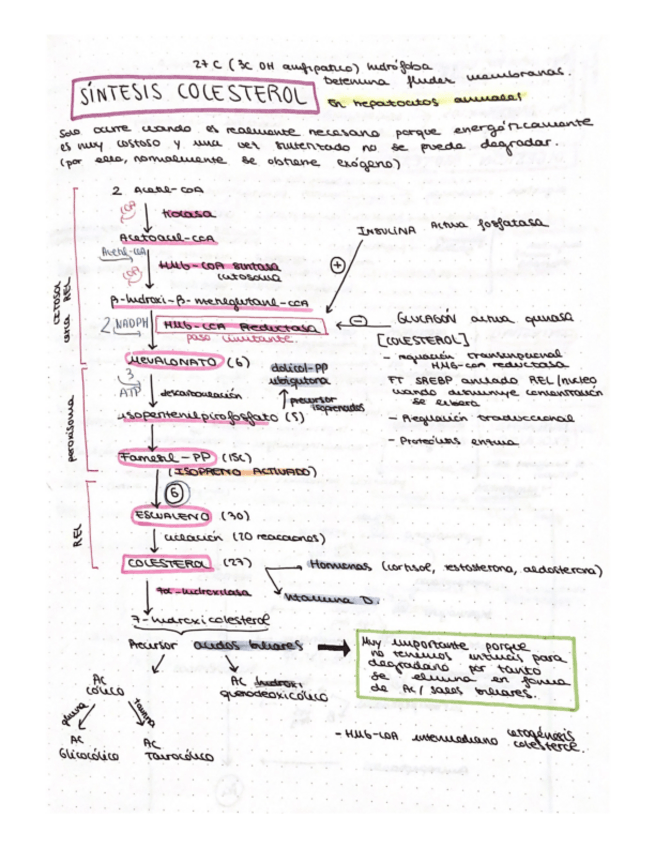 27 C (3C OH anfipático) hidrófoba
Determina fluidez membranas.
SÍNTESIS COLESTEROL
en hepatocitos animales
Solo ocurre cuando es realmente necesario porque energéticamente
es muy costoso y una vez sintetizado no se puede degradar.
(por ello, normalmente se obtiene exógeno)
2 Acetil-CoA
COA
tiolasa
Acetoacil-CoA
Acetil-CoA
COA
HMG-COA sintasa
citosolica
INSULINA Activa fosfatasa
+
β-hidroxi-β-metilglutaril-CoA
2 NADPH
HMG-CoA Reductasa
paso limitante.
-
GLUCAGÓN activa quinasa
[COLESTEROL]
- regulación transcripcional
HMG-COA reductasa
FT SREBP anclado REL/núcleo
cuando disminuye concentración
se libera
- Regulación traduccional
- Proteólisis enzima
CITOSOL
REL
MEVALONATO (6)
3
ATP
descarboxilación
dolicol-PP
ubiquinona
precursor
isoprenoides
isopentenilpirofosfato (5)
peroxisoma
Farnesil-PP (15C)
(ISOPRENO ACTIVADO)
6
ESCUALENO (30)
REL
ciclación (20 reacciones)
COLESTEROL (27)
Hormonas (cortisol, testosterona, aldosterona)
Vitamina D.
7α-hidroxilasa
7-hidroxicolesterol
Precursor ácidos biliares
Muy importante porque
no tenemos enzimas para
degradarlo por tanto
se elimina en forma
de Ac/ sales biliares.
AC
cólico
AC
quenodeoxicólico
glicina
taurina
AC
Glicocólico
AC
Taurocólico
- HMG-COA intermediario cetogénesis
colesterol.